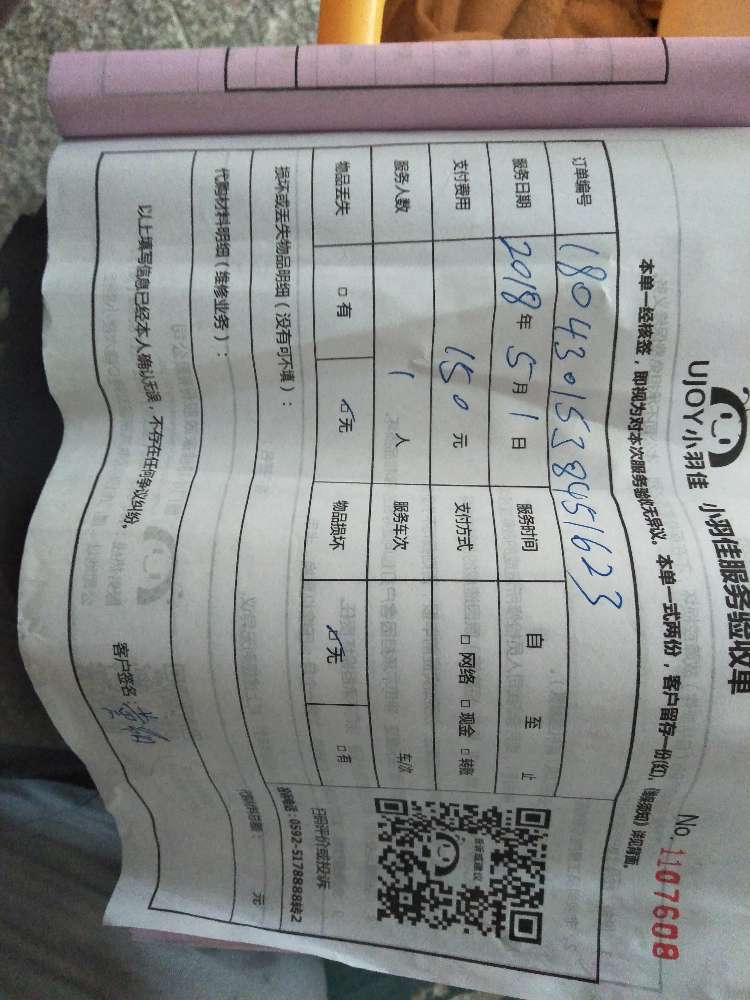 UJOY小羽佳 小羽佳服务验收单
No. 1107608
本单一经核签，即视为对本次服务验收无异议。本单一式两份，客户留存一份(红)，《客服须知》详见背面。
订单编号 1804301538451623
服务日期 2018年5月1日 服务时间 自 至 止
支付费用 150元 支付方式 □网络 □现金 □转账
服务人数 1人 服务车次 车/次
物品丢失 □有 ☑无 物品损坏 ☑无 □有
损坏或丢失物品明细（没有可不填）：
扫码评价或投诉
投诉电话：0592-5178888转2
代购材料明细（维修业务）：
代购材料总额： 元
以上填写信息已经本人确认无误，不存在任何争议纠纷。
客户签名